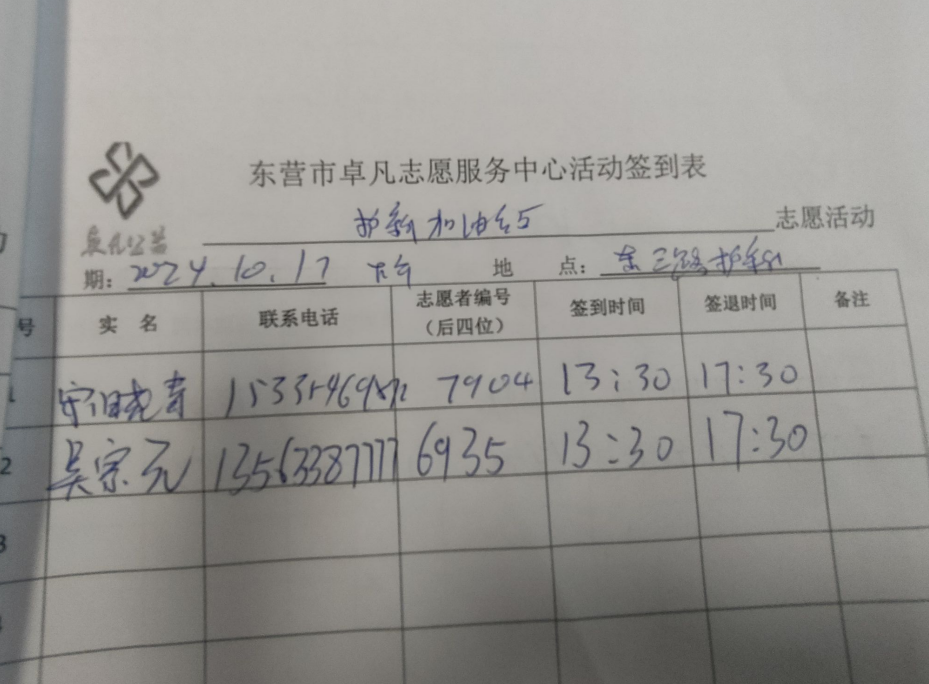 东营市卓凡志愿服务中心活动签到表
卓凡公益
护新加油站 志愿活动
期：2024.10.17 下午 地 点：东三路护新
号 实 名 联系电话 志愿者编号（后四位） 签到时间 签退时间 备注
7904 13:30 17:30
2 吴宗元 13563387777 6935 13:30 17:30
3